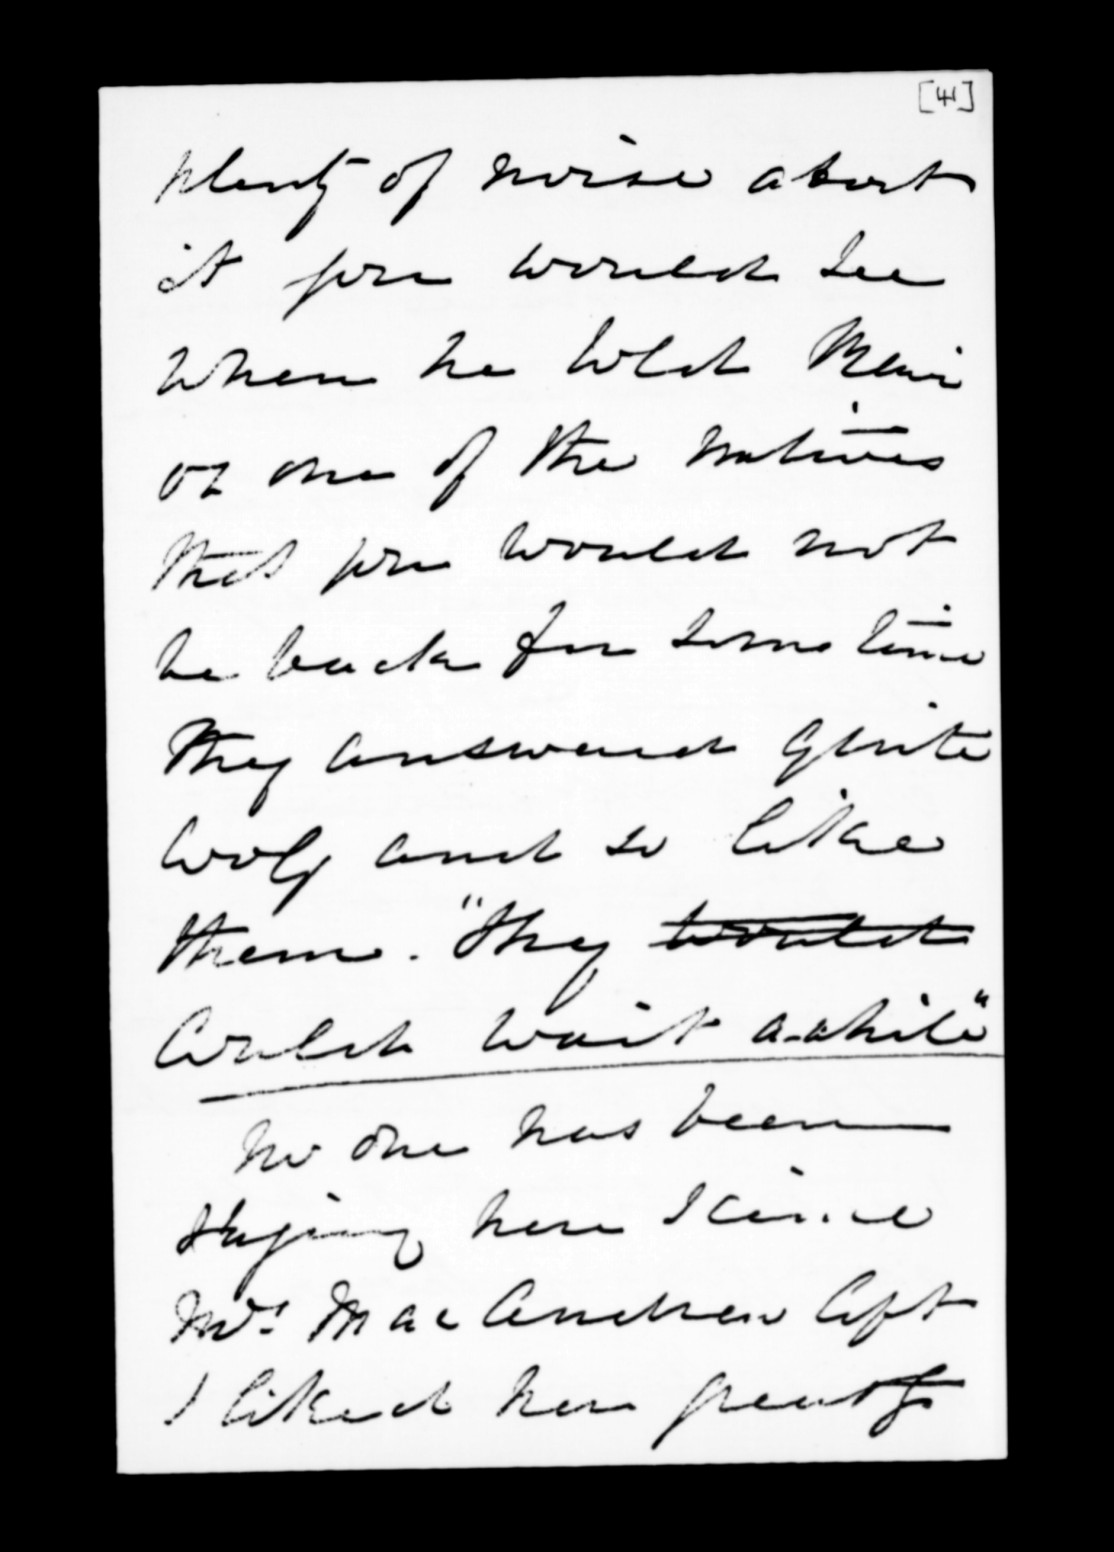 [4]
plenty of noise about
it you would see
when he told
or one of the natives
that you would not
be back for some time
they answered quite
cooly and so like
them. "They ~~would~~
could wait a-while"
No one has been
staying here scince
Mrs. MacAndrew left
I liked her greatly